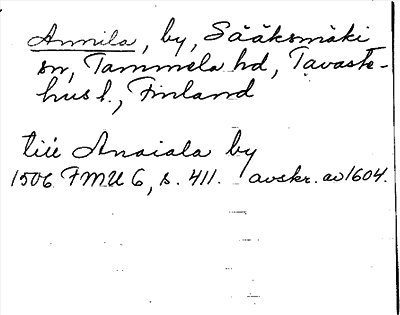 Annila, by, Sääksmäki
sn, Tammela hd, Tavaste-
hus l., Finland
till Anoiala by
1506. FMU 6, s. 411. avskr. av 1604.